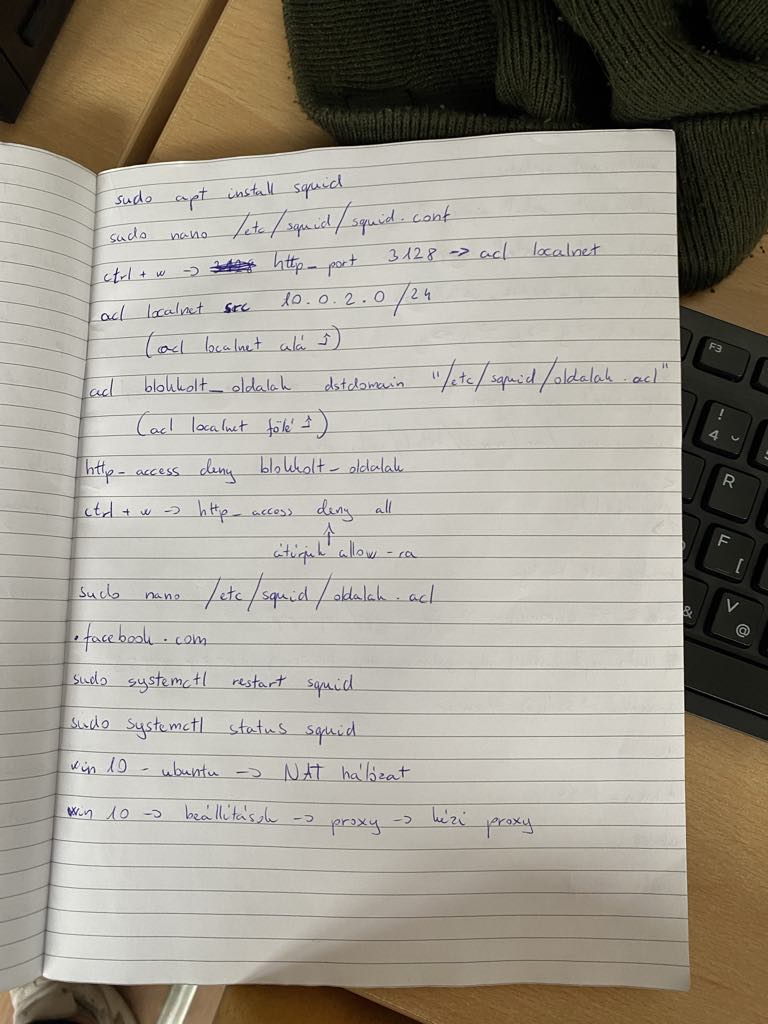 sudo apt install squid
sudo nano /etc/squid/squid.conf
ctrl + w -> http_port 3128 -> acl localnet
acl localnet src 10.0.2.0/24
(acl localnet alá ⤴)
acl blokkolt_oldalak dstdomain "/etc/squid/oldalak.acl"
(acl localnet fölé ⤴)
http_access deny blokkolt_oldalak
ctrl + w -> http_access deny all
↑
átírjuk allow-ra
sudo nano /etc/squid/oldalak.acl
.facebook.com
sudo systemctl restart squid
sudo systemctl status squid
win 10 - ubuntu -> NAT hálózat
win 10 -> beállítások -> proxy -> kézi proxy
F3
!
4
R
F
[
&
V
@